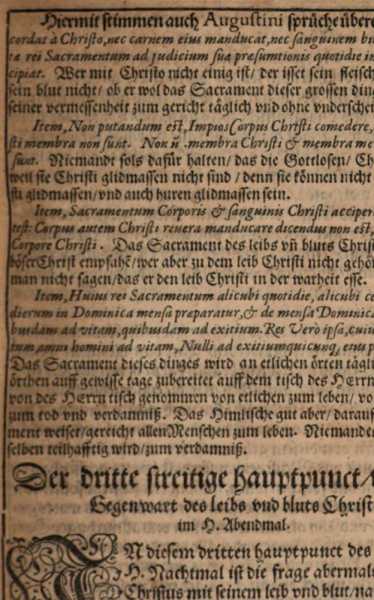 Hiermit stimmen auch Augustini sprüche übere
cordat à Christo, nec carnem eius manducat, nec sanguinem bi
ta rei Sacramentum ad judicium suæ præsumtionis quotidie in
cipiat. Wer mit Christo nicht einig ist/ der isset sein fleisch
sein blut nicht/ ob er wol das Sacrament dieser grossen din
seiner vermessenheit zum gericht täglich vnd ohne vnderschei
Item, Non putandum est, Impios Corpus Christi comedere,
sti membra non sunt. Non n̄. membra Christi & membra me
sunt. Niemandt sols dafür halten/ das die Gottlosen/ Ch
weil sie Christi glidmassen nicht sind/ denn sie können nicht
sti glidmassen/ vnd auch huren glidmassen sein.
Item, Sacramentum Corporis & sanguinis Christi accipere
test: Corpus autem Christi revera manducare dicendus non est,
Corpore Christi. Das Sacrament des leibs vn̄ bluts Chris
böser Christ empfahē/ wer aber zu dem leib Christi nicht gehö
man nicht sagen/ das er den leib Christi in der warheit esse.
Item, Huius rei Sacramentum alicubi quotidie, alicubi ce
dierum in Dominica mensa præparatur, & de mensa Dominica
busdam ad vitam, quibusdam ad exitium. Res Vero ipsa, cuiu
tum, omni homini ad vitam, Nulli ad exitium, quicunq, eius p
Das Sacrament dieses dinges wird an etlichen örten tägli
örthen auff gewisse tage zubereitet auff dem tisch des HErrn
von des HErrn tisch genommen von etlichen zum leben/ vo
zum tod vnd verdamniß. Das Himlische gut aber/ darauf
ment weiset/ gereicht allen Menschen zum leben. Niemande
selben teilhafftig wird/ zum verdamniß.
Der dritte streitige hauptpunct/
Gegenwart des leibs vnd bluts Christ
im H. Abendmal.
IN diesem dritten hauptpunct des
H. Nachtmal ist die frage abermal
Christus mit seinem leib vnd blut/ na